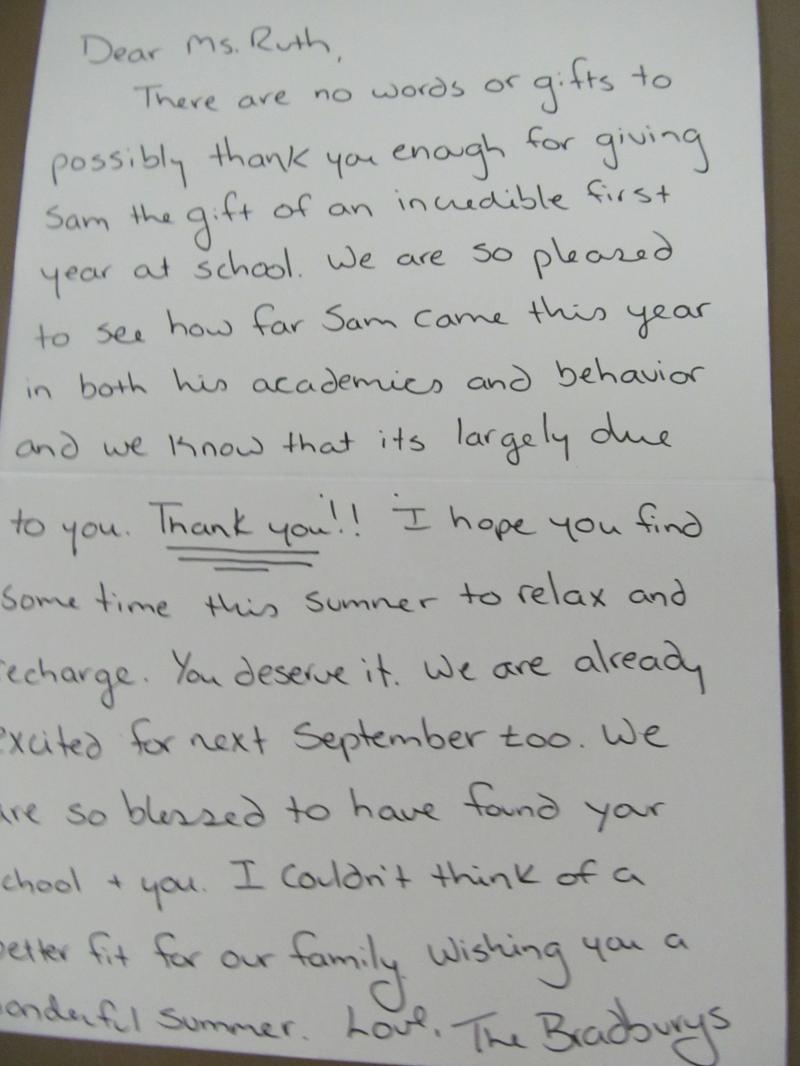 Dear Ms. Ruth,
There are no words or gifts to
possibly thank you enough for giving
Sam the gift of an incredible first
year at school. We are so pleased
to see how far Sam came this year
in both his academics and behavior
and we know that its largely due
to you. Thank you!! I hope you find
some time this summer to relax and
echarge. You deserve it. We are already
excited for next September too. We
are so blessed to have found your
chool + you. I couldn't think of a
better fit for our family. Wishing you a
onderful summer. Love, The Bradburys